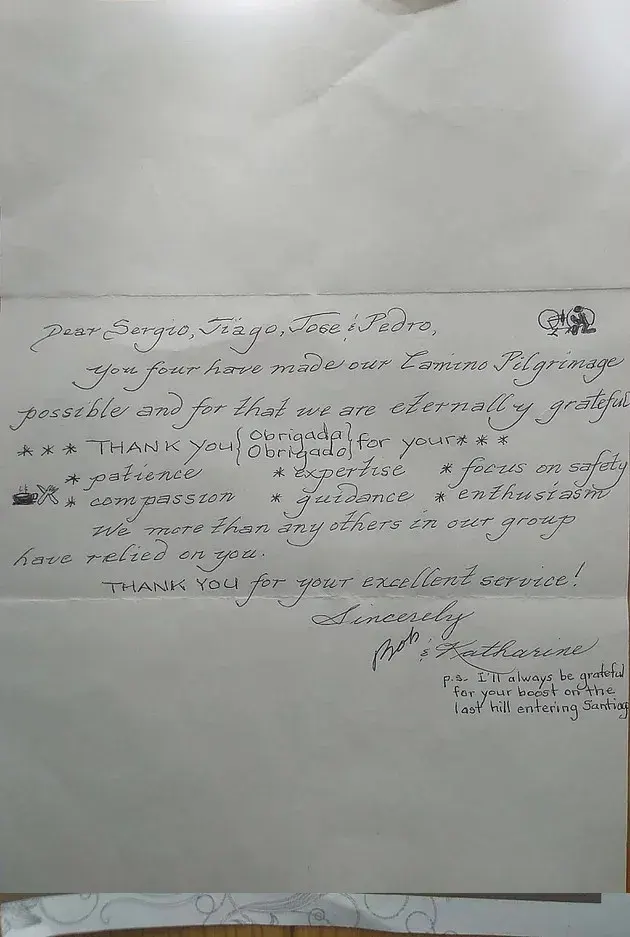 Dear Sergio, Tiago, Jose & Pedro,
You four have made our Camino Pilgrimage
possible and for that we are eternally grateful
* * * THANK YOU { Obrigada Obrigado } for your * * *
* patience * expertise * focus on safety
* compassion * guidance * enthusiasm
We more than any others in our group
have relied on you.
THANK YOU for your excellent service!
Sincerely
Bob & Katharine
p.s. I'll always be grateful
for your boost on the
last hill entering Santiag